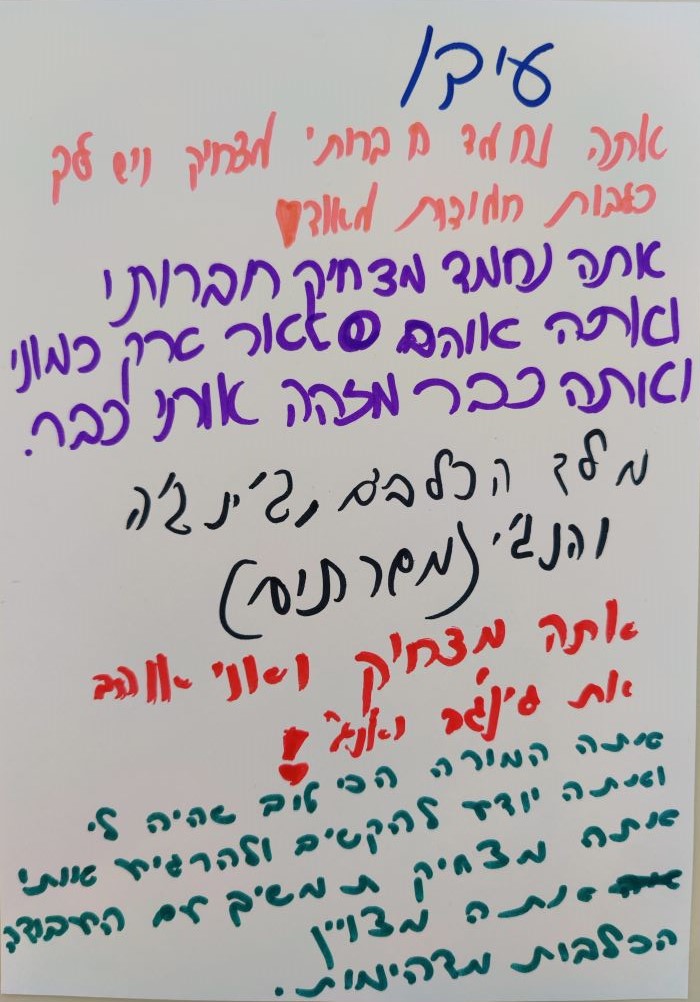 עידן
אתה נחמד חברותי מצחיק ויש לך
כלבות חמודות מאוד
אתה נחמד מצחיק חברותי
ואתה אוהב לאור ארק כמוני
ואתה כבר מזהה אותי כבר.
מלך הכלבים, ג'ינג'ה
והנג'י (מסרתיש)
אתה מצחיק ואני אוהב
את ג'ינג'ר ואנג'י
אתה המורה הכי טוב שהיה לי
ואתה יודע להקשיב ולהרגיע אותי
אתה מצחיק תמשיך עם העבודה
אתה מצויין
הכלבות מדהימות.